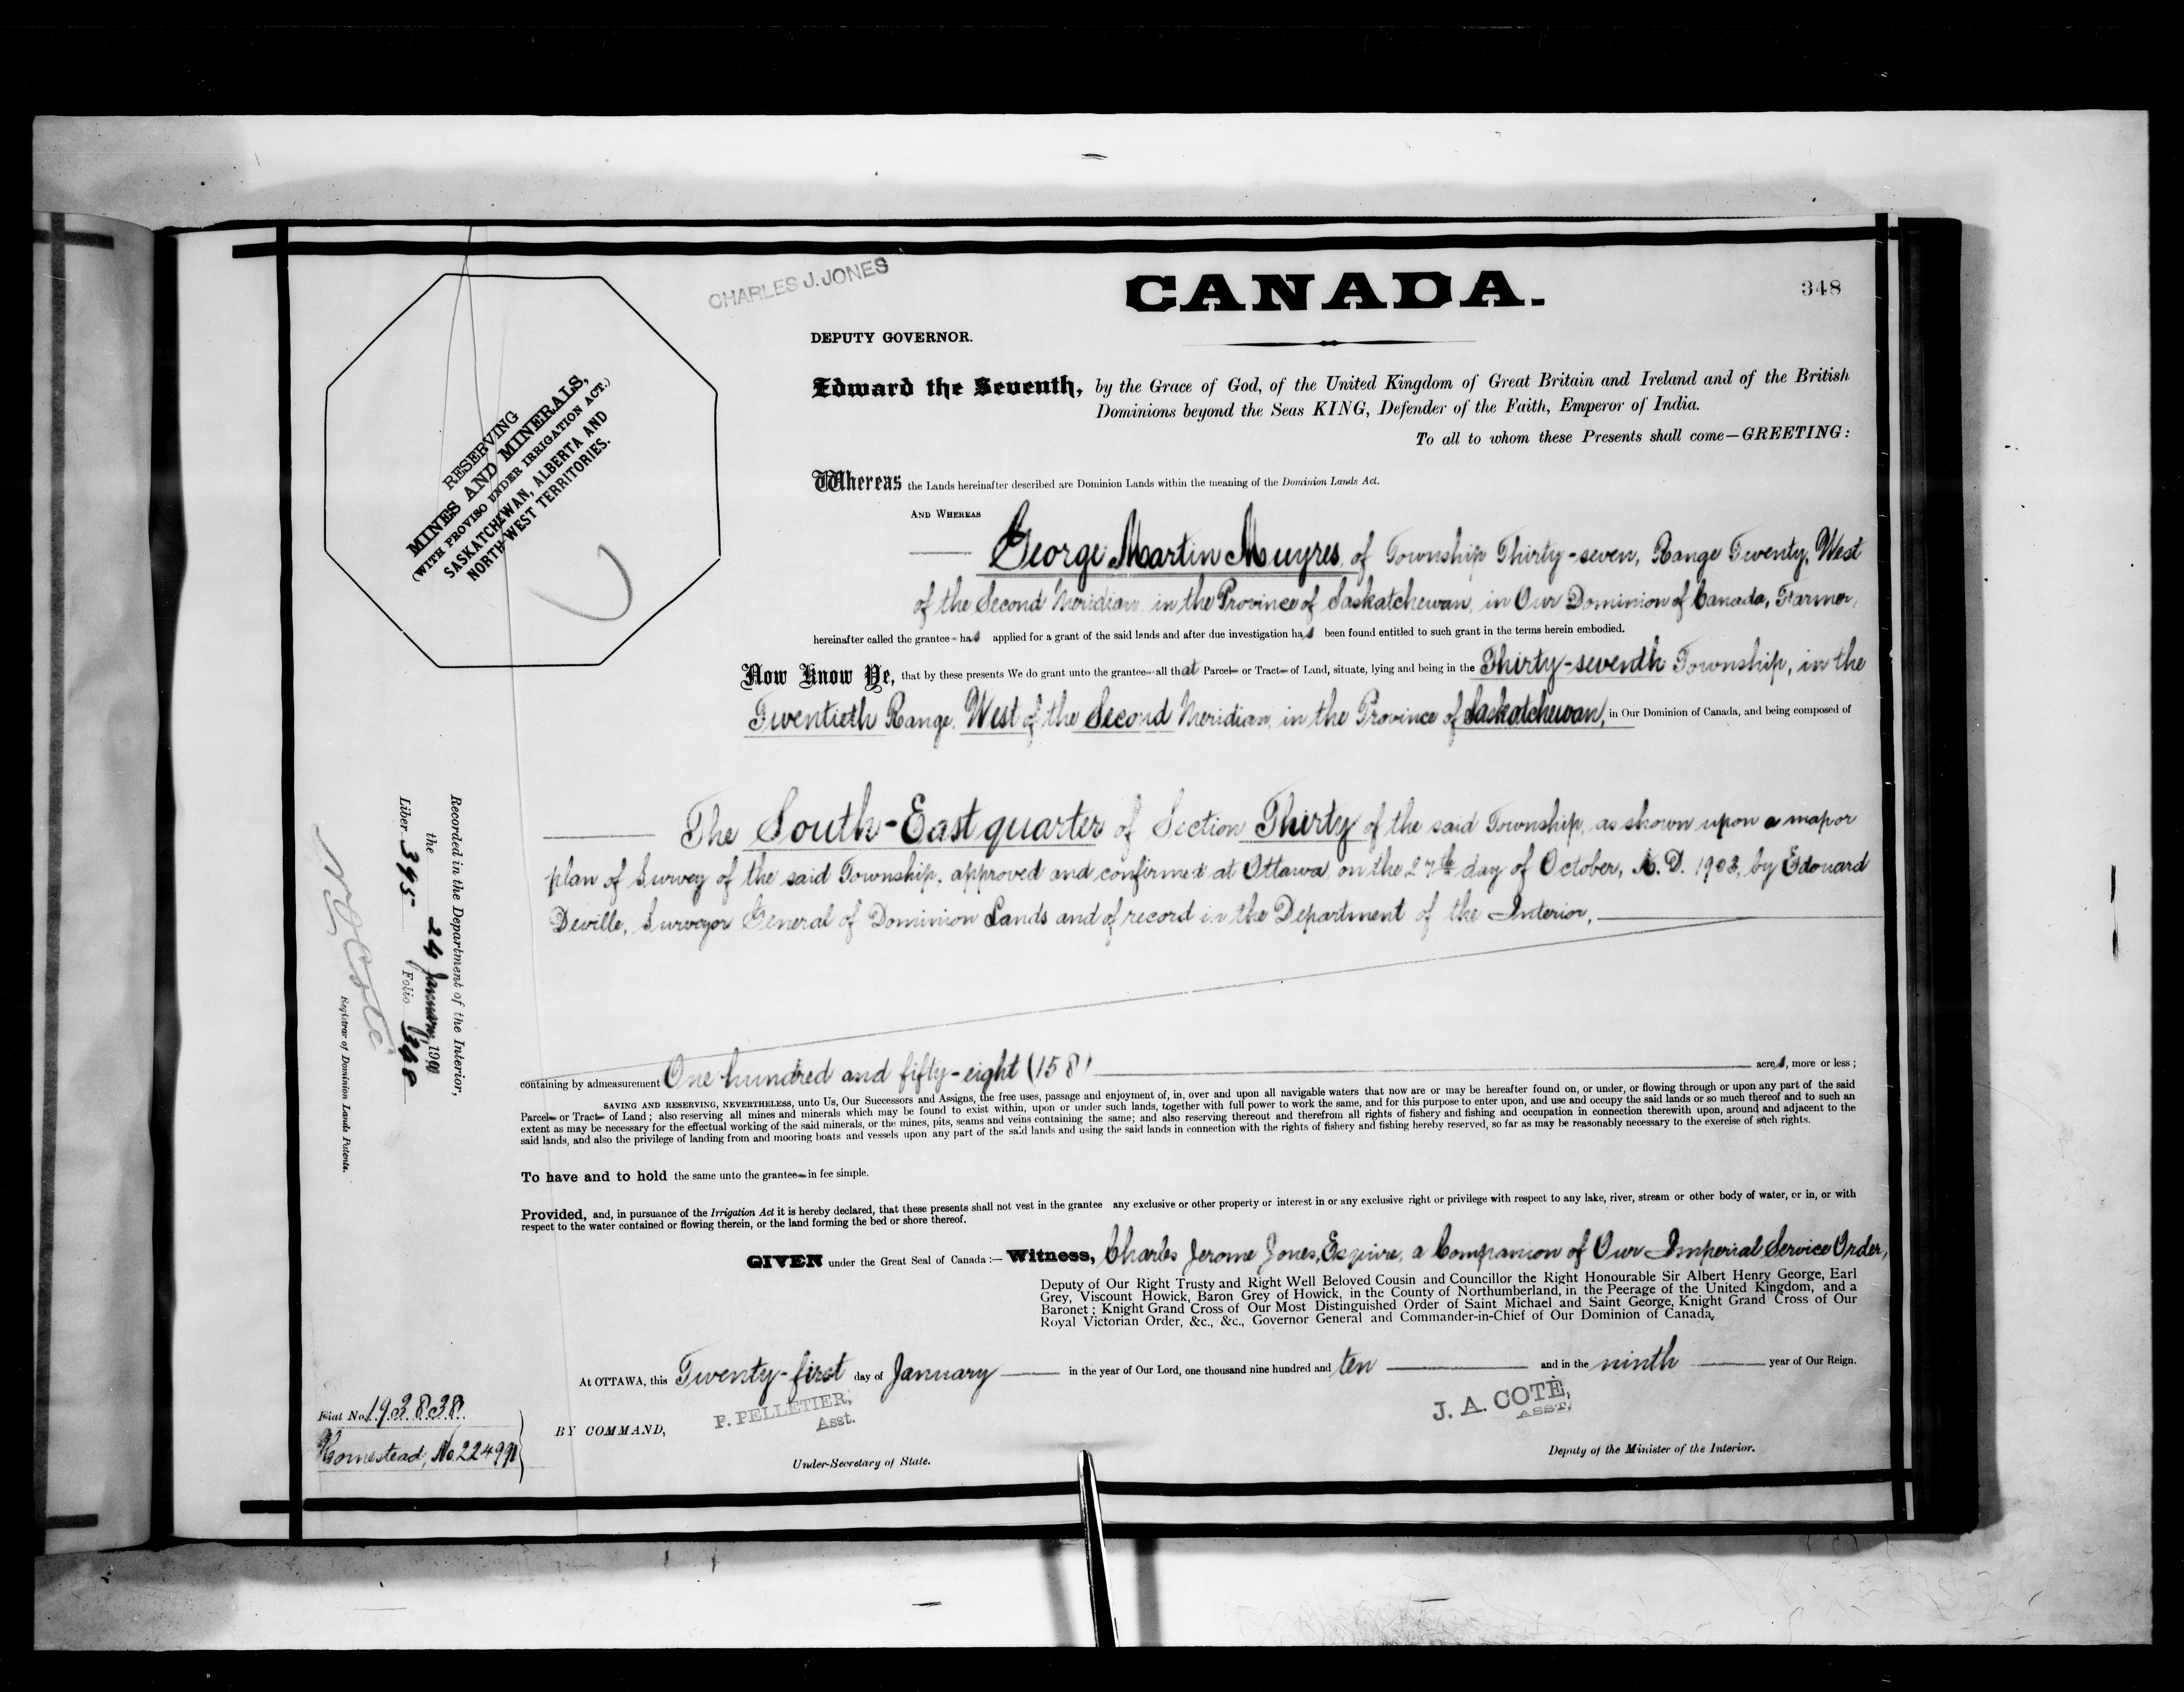 CHARLES J. JONES
CANADA.
348
DEPUTY GOVERNOR.
Edward the Seventh, by the Grace of God, of the United Kingdom of Great Britain and Ireland and of the British
Dominions beyond the Seas KING, Defender of the Faith, Emperor of India.
To all to whom these Presents shall come—GREETING:
RESERVING
MINES AND MINERALS,
(WITH PROVISO UNDER IRRIGATION ACT.)
SASKATCHEWAN, ALBERTA AND
NORTH WEST TERRITORIES.
Whereas the Lands hereinafter described are Dominion Lands within the meaning of the Dominion Lands Act.
AND WHEREAS
George Martin Muyres, of Township Thirty-seven, Range Twenty, West
of the Second Meridian, in the Province of Saskatchewan, in Our Dominion of Canada, Farmer,
hereinafter called the grantee has applied for a grant of the said lands and after due investigation has been found entitled to such grant in the terms herein embodied.
Now Know Ye, that by these presents We do grant unto the grantee all that Parcel or Tract of Land, situate, lying and being in the Thirty-seventh Township, in the
Twentieth Range, West of the Second Meridian, in the Province of Saskatchewan, in Our Dominion of Canada, and being composed of
The South-East quarter of Section Thirty of the said Township, as shown upon a map or
plan of Survey of the said Township, approved and confirmed at Ottawa on the 27th day of October, A.D. 1903, by Edouard
Deville, Surveyor General of Dominion Lands and of record in the Department of the Interior,
containing by admeasurement One hundred and fifty-eight (158) acres, more or less;
SAVING AND RESERVING, NEVERTHELESS, unto Us, Our Successors and Assigns, the free uses, passage and enjoyment of, in, over and upon all navigable waters that now are or may be hereafter found on, or under, or flowing through or upon any part of the said
Parcel or Tract of Land; also reserving all mines and minerals which may be found to exist within, upon or under such lands, together with full power to work the same, and for this purpose to enter upon, and use and occupy the said lands or so much thereof and to such an
extent as may be necessary for the effectual working of the said minerals, or the mines, pits, seams and veins containing the same; and also reserving thereout and therefrom all rights of fishery and fishing and occupation in connection therewith upon, around and adjacent to the
said lands, and also the privilege of landing from and mooring boats and vessels upon any part of the said lands and using the said lands in connection with the rights of fishery and fishing hereby reserved, so far as may be reasonably necessary to the exercise of such rights.
To have and to hold the same unto the grantee in fee simple.
Provided, and, in pursuance of the Irrigation Act it is hereby declared, that these presents shall not vest in the grantee any exclusive or other property or interest in or any exclusive right or privilege with respect to any lake, river, stream or other body of water, or in, or with
respect to the water contained or flowing therein, or the land forming the bed or shore thereof.
GIVEN under the Great Seal of Canada:— Witness, Charles Jerome Jones, Esquire, a Companion of Our Imperial Service Order,
Deputy of Our Right Trusty and Right Well Beloved Cousin and Councillor the Right Honourable Sir Albert Henry George, Earl
Grey, Viscount Howick, Baron Grey of Howick, in the County of Northumberland, in the Peerage of the United Kingdom, and a
Baronet; Knight Grand Cross of Our Most Distinguished Order of Saint Michael and Saint George, Knight Grand Cross of Our
Royal Victorian Order, &c., &c., Governor General and Commander-in-Chief of Our Dominion of Canada,
At OTTAWA, this Twenty-first day of January in the year of Our Lord, one thousand nine hundred and ten and in the ninth year of Our Reign.
BY COMMAND,
F. PELLETIER,
Asst.
Under-Secretary of State.
J. A. COTÈ,
ASST.
Deputy of the Minister of the Interior.
Recorded in the Department of the Interior,
the 24 January, 19
Liber 395 Folio 348
Coté
Registrar of Dominion Lands Patents.
Fiat No. 193838
Homestead, No.